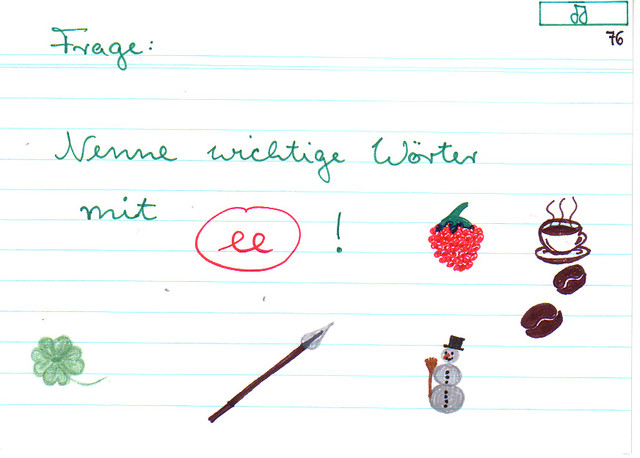 76
Frage:
Nenne wichtige Wörter
mit ee !